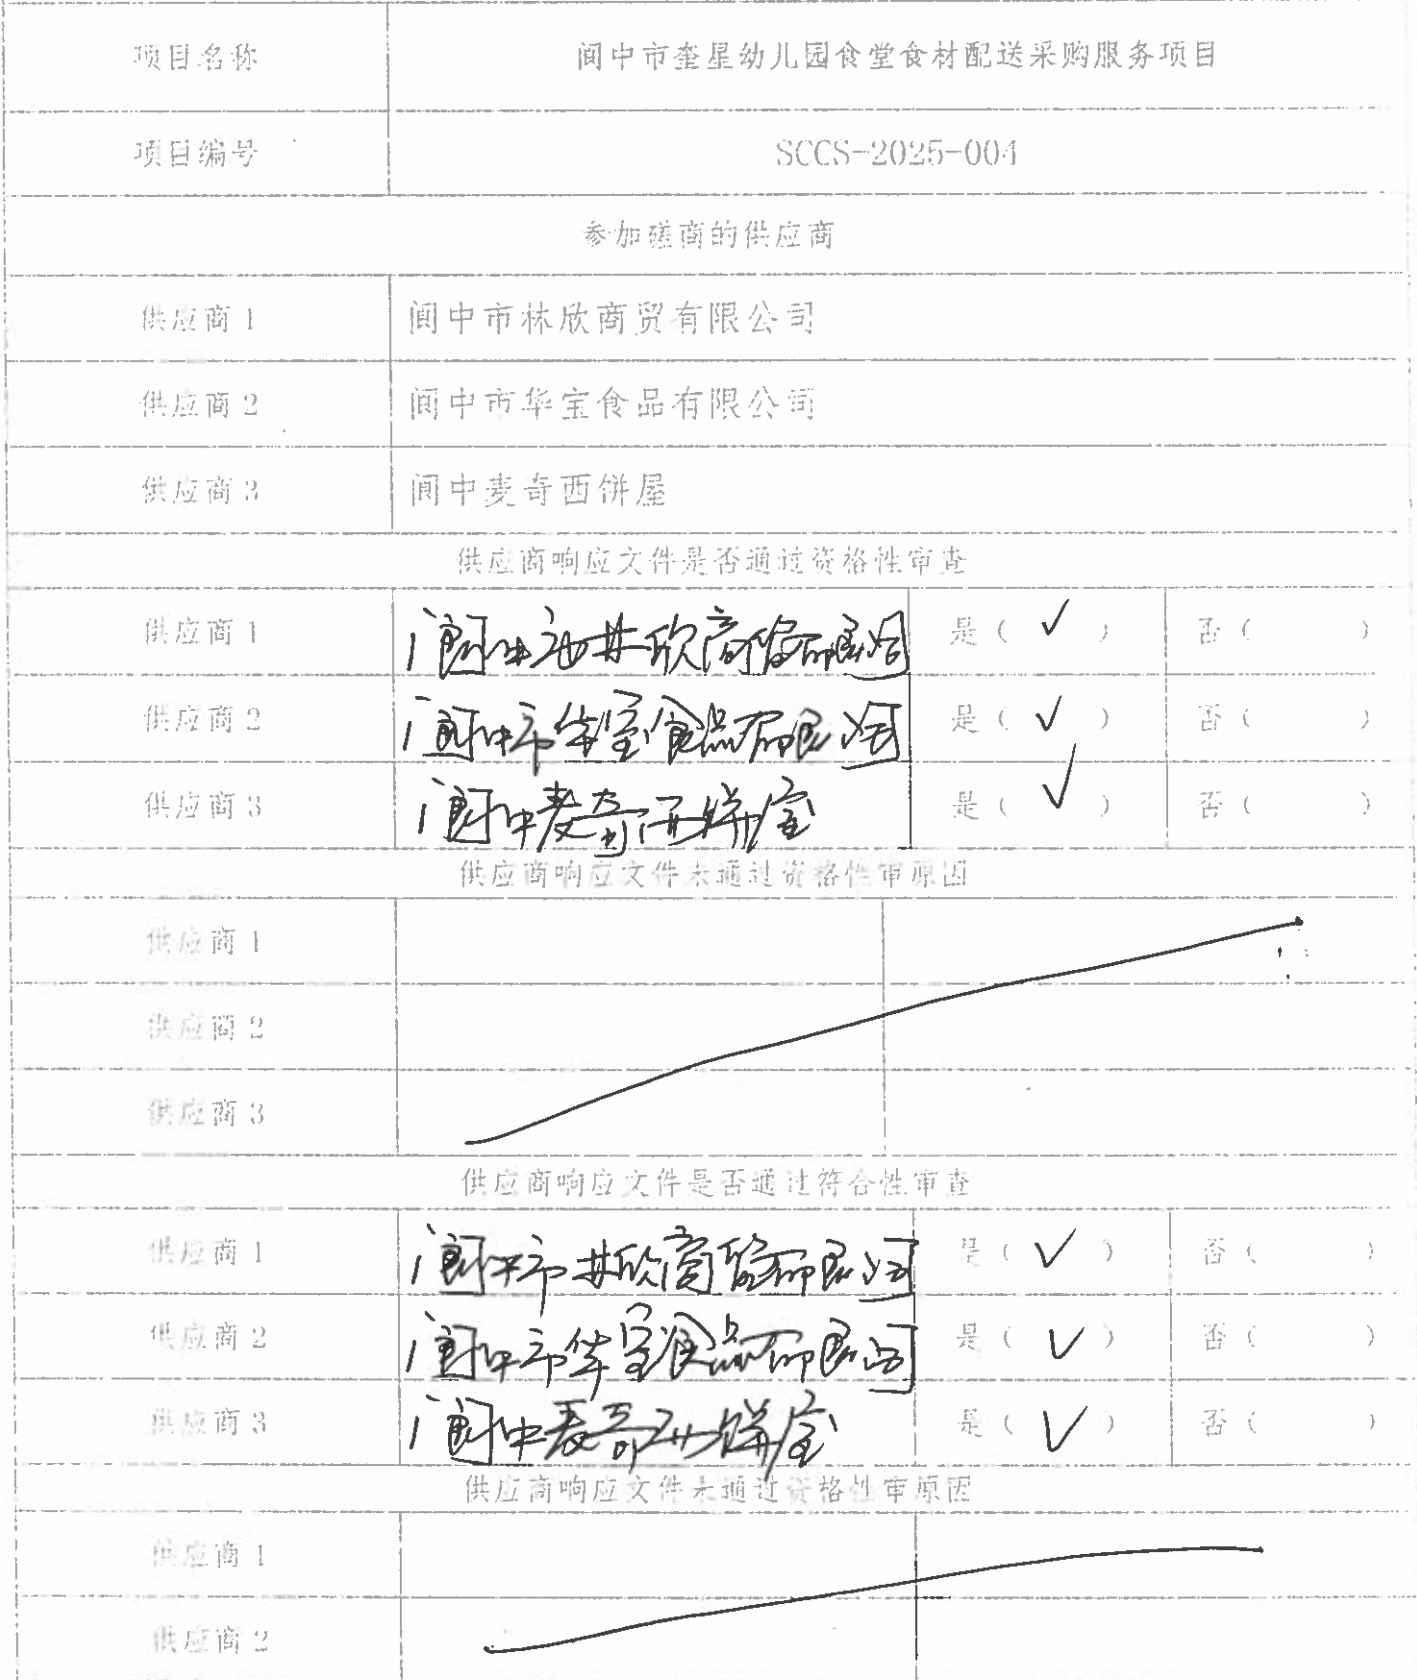 项目名称 阆中市奎星幼儿园食堂食材配送采购服务项目
项目编号 SCCS-2025-004
参加磋商的供应商
供应商1 阆中市林欣商贸有限公司
供应商2 阆中市华宝食品有限公司
供应商3 阆中麦奇西饼屋
供应商响应文件是否通过资格性审查
供应商1 阆中市林欣商贸有限公司 是（✓） 否（ ）
供应商2 阆中市华宝食品有限公司 是（✓） 否（ ）
供应商3 阆中麦奇西饼屋 是（✓） 否（ ）
供应商响应文件未通过资格性审原因
供应商1
供应商2
供应商3
供应商响应文件是否通过符合性审查
供应商1 阆中市林欣商贸有限公司 是（✓） 否（ ）
供应商2 阆中市华宝食品有限公司 是（✓） 否（ ）
供应商3 阆中麦奇西饼屋 是（✓） 否（ ）
供应商响应文件未通过资格性审原因
供应商1
供应商2